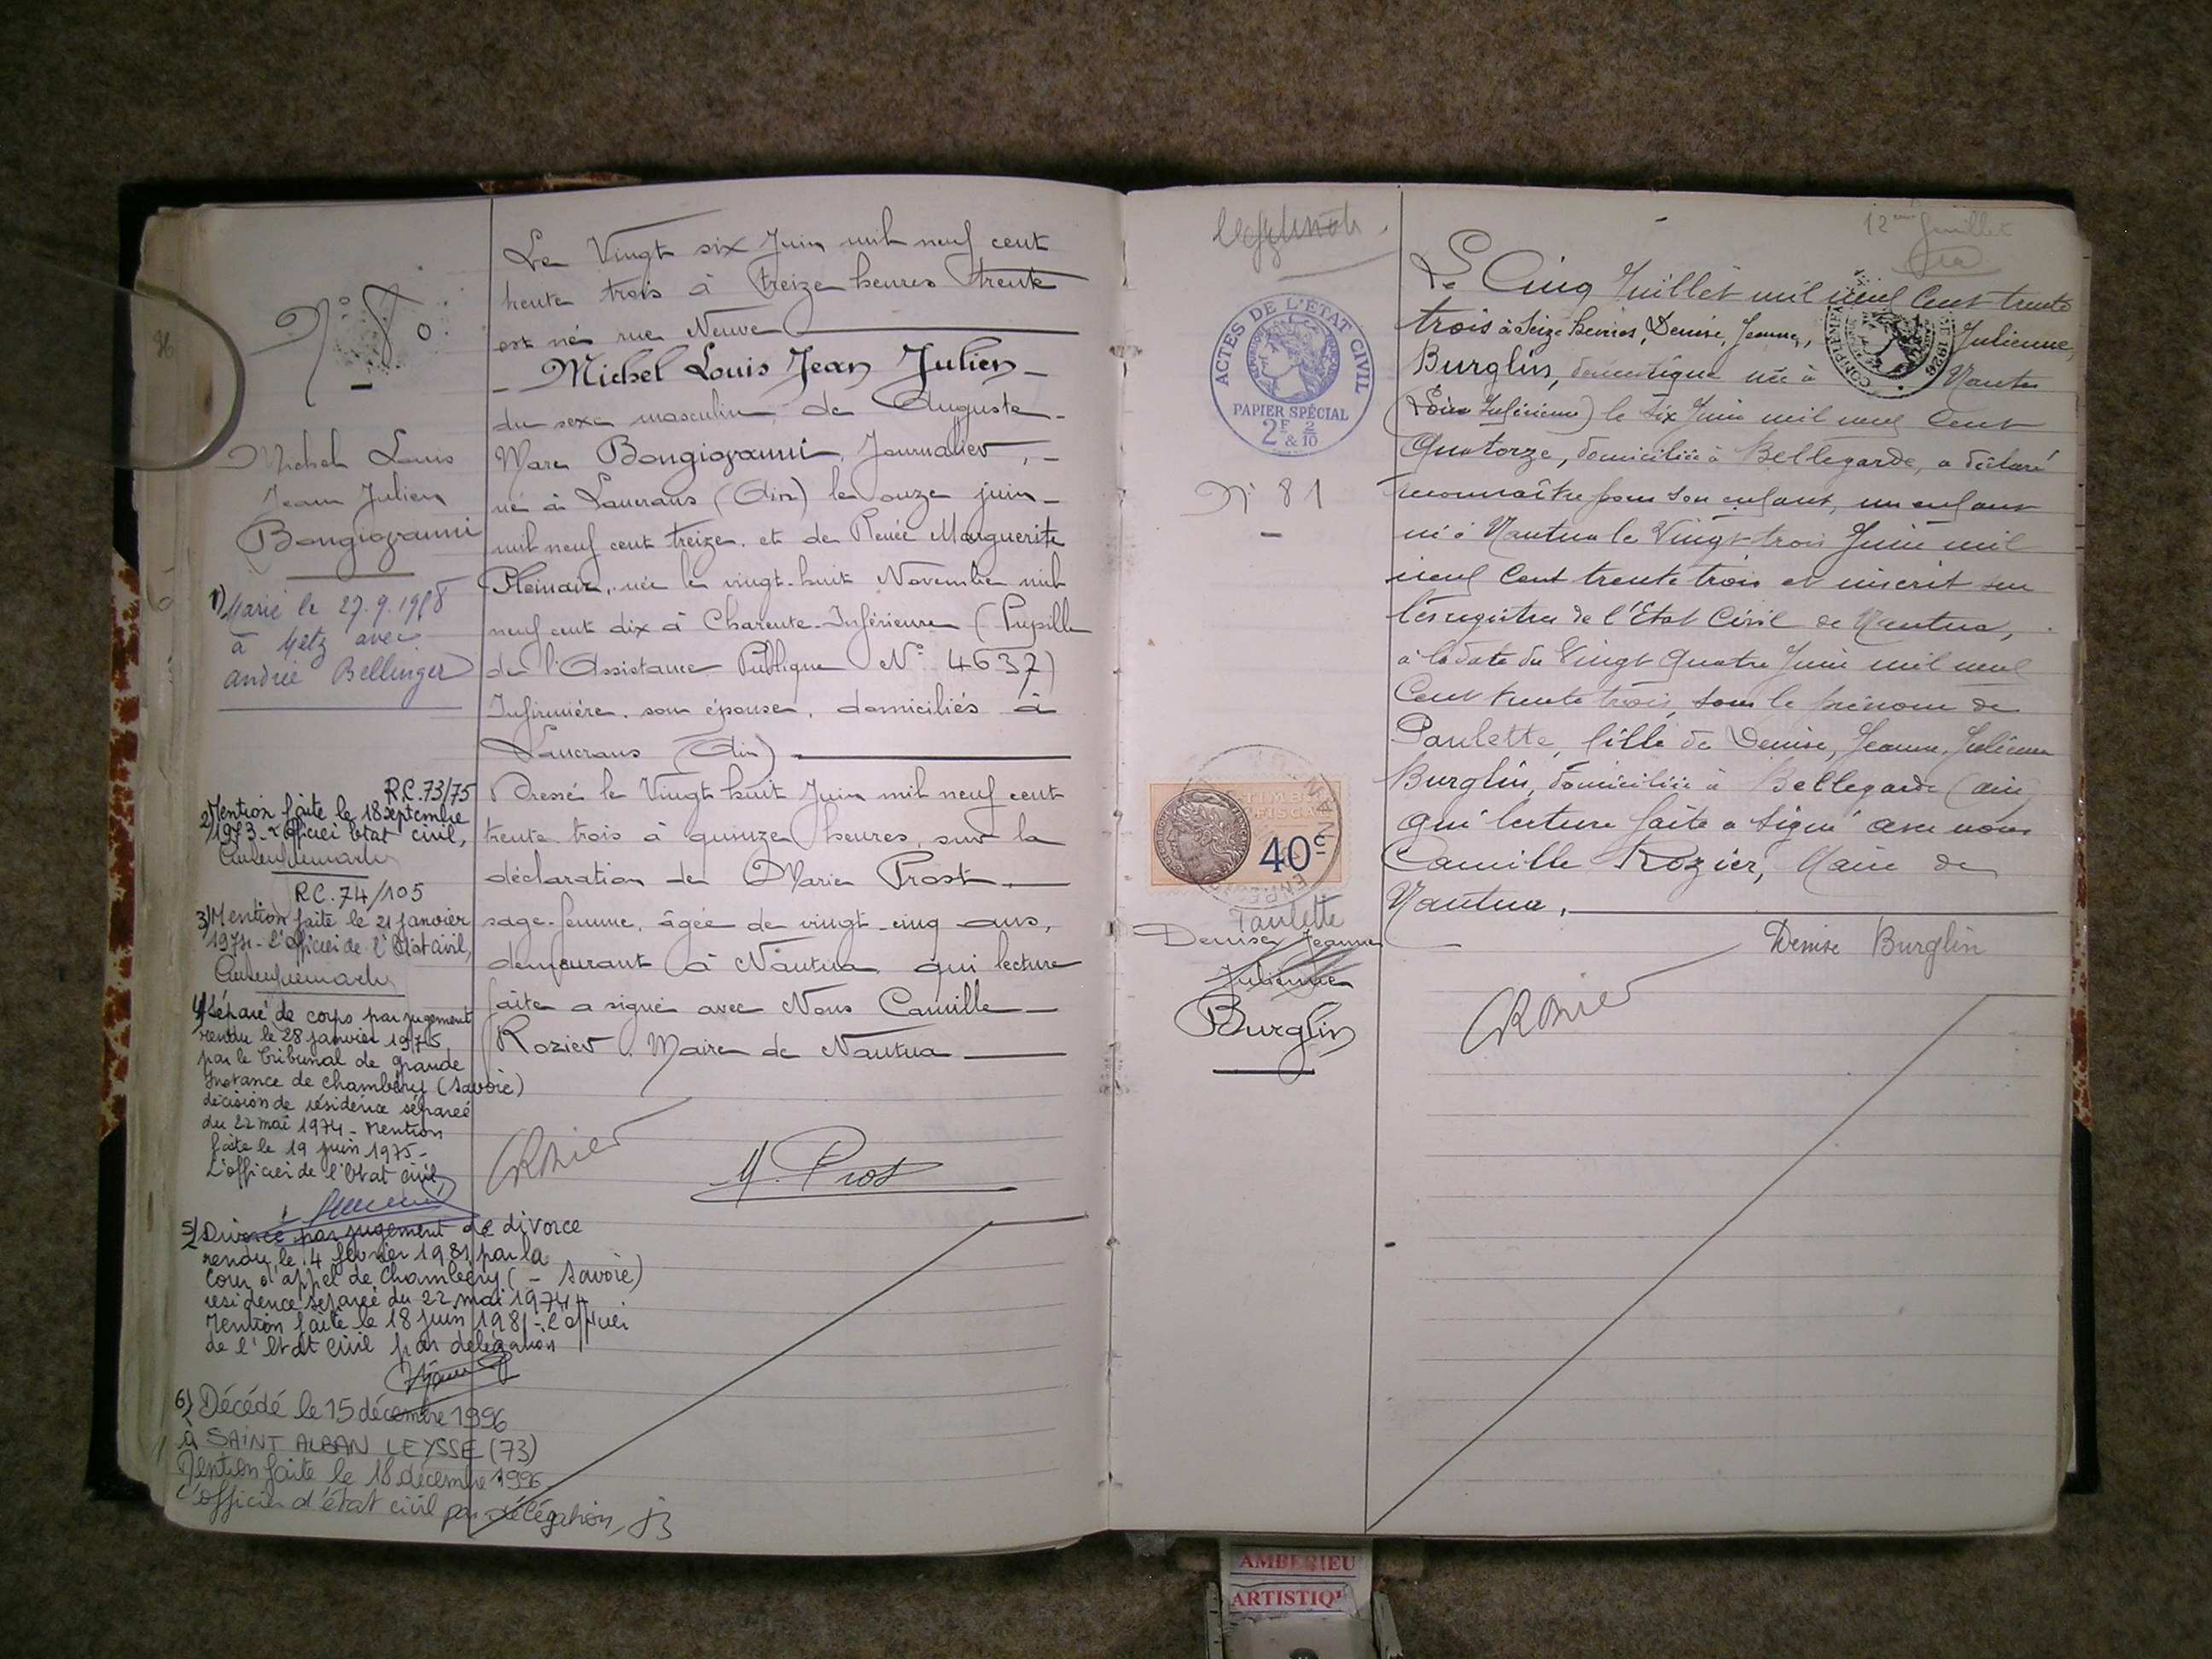 N° 80
Michel Louis
Jean Julien
Bongiovanni
1) Marié le 27.9.1958
à Metz avec
andrée Bellinger
R.C. 73/75
2) Mention faite le 18 septembre
1973 - L'officier Etat civil,
RC. 74/105
3) Mention faite le 21 janvier
1974 - L'officier de l'Etat civil,
4) Séparé de corps par jugement
rendu le 28 janvier 1975
par le Tribunal de grande
Instance de Chambéry (Savoie)
décision de résidence séparée
du 22 mai 1974 - Mention
faite le 19 juin 1975 -
L'officier de l'Etat civil,
5) Divorcé par jugement de divorce
rendu le 4 février 1981 par la
Cour d'appel de Chambéry ( - Savoie)
résidence séparée du 22 mai 1974
Mention faite le 18 juin 1981 - L'officier
de l'Etat civil par délégation
6) Décédé le 15 décembre 1996
à SAINT ALBAN LEYSSE (73)
Mention faite le 18 décembre 1996
L'officier d'état civil par délégation,
Le Vingt six Juin mil neuf cent
trente trois à treize heures trente
est né rue Neuve
- Michel Louis Jean Julien -
du sexe masculin, de Auguste -
Marc Bongiovanni, Journalier, -
né à Lancrans (Ain) le onze juin -
mil neuf cent treize, et de Renée Marguerite
née le vingt-huit Novembre mil
neuf cent dix à Charente-Inférieure (Pupille
de l'Assistance Publique N° 4637)
Infirmière, son épouse, domiciliés à
Lancrans (Ain)
Dressé le Vingt huit Juin mil neuf cent
trente trois à quinze heures, sur la
déclaration de Marie Prost,
sage-femme, âgée de vingt-cinq ans,
demeurant à Nantua, qui lecture
faite a signé avec Nous Camille
Rozier, Maire de Nantua
CRozier
M. Prost
ACTES DE L'ÉTAT CIVIL
PAPIER SPÉCIAL
2F & 2/10
N° 81
TIMBRE
FISCAL
40c
Paulette
Denise Jeanne
Julienne
Burglin
12eme feuillet
Le Cinq Juillet mil neuf Cent trente
trois à Seize heures, Denise, Jeanne, Julienne,
Burglin, née à Nantes
(Loire Inférieure) le Six Juin mil neuf Cent
Quatorze, domiciliée à Bellegarde, a déclaré
reconnaître pour son enfant, un enfant
né à Nantua le Vingt-trois Juin mil
neuf Cent trente trois et inscrit sur
les registres de l'Etat Civil de Nantua,
à la date du Vingt Quatre Juin mil neuf
Cent trente trois, sous le prénom de
Paulette, fille de Denise, Jeanne, Julienne
Burglin, domiciliée à Bellegarde (ain)
qui lecture faite a signé avec nous
Camille Rozier, Maire de
Nantua,
Denise Burglin
CRozier
AMBERIEU
ARTISTIQ